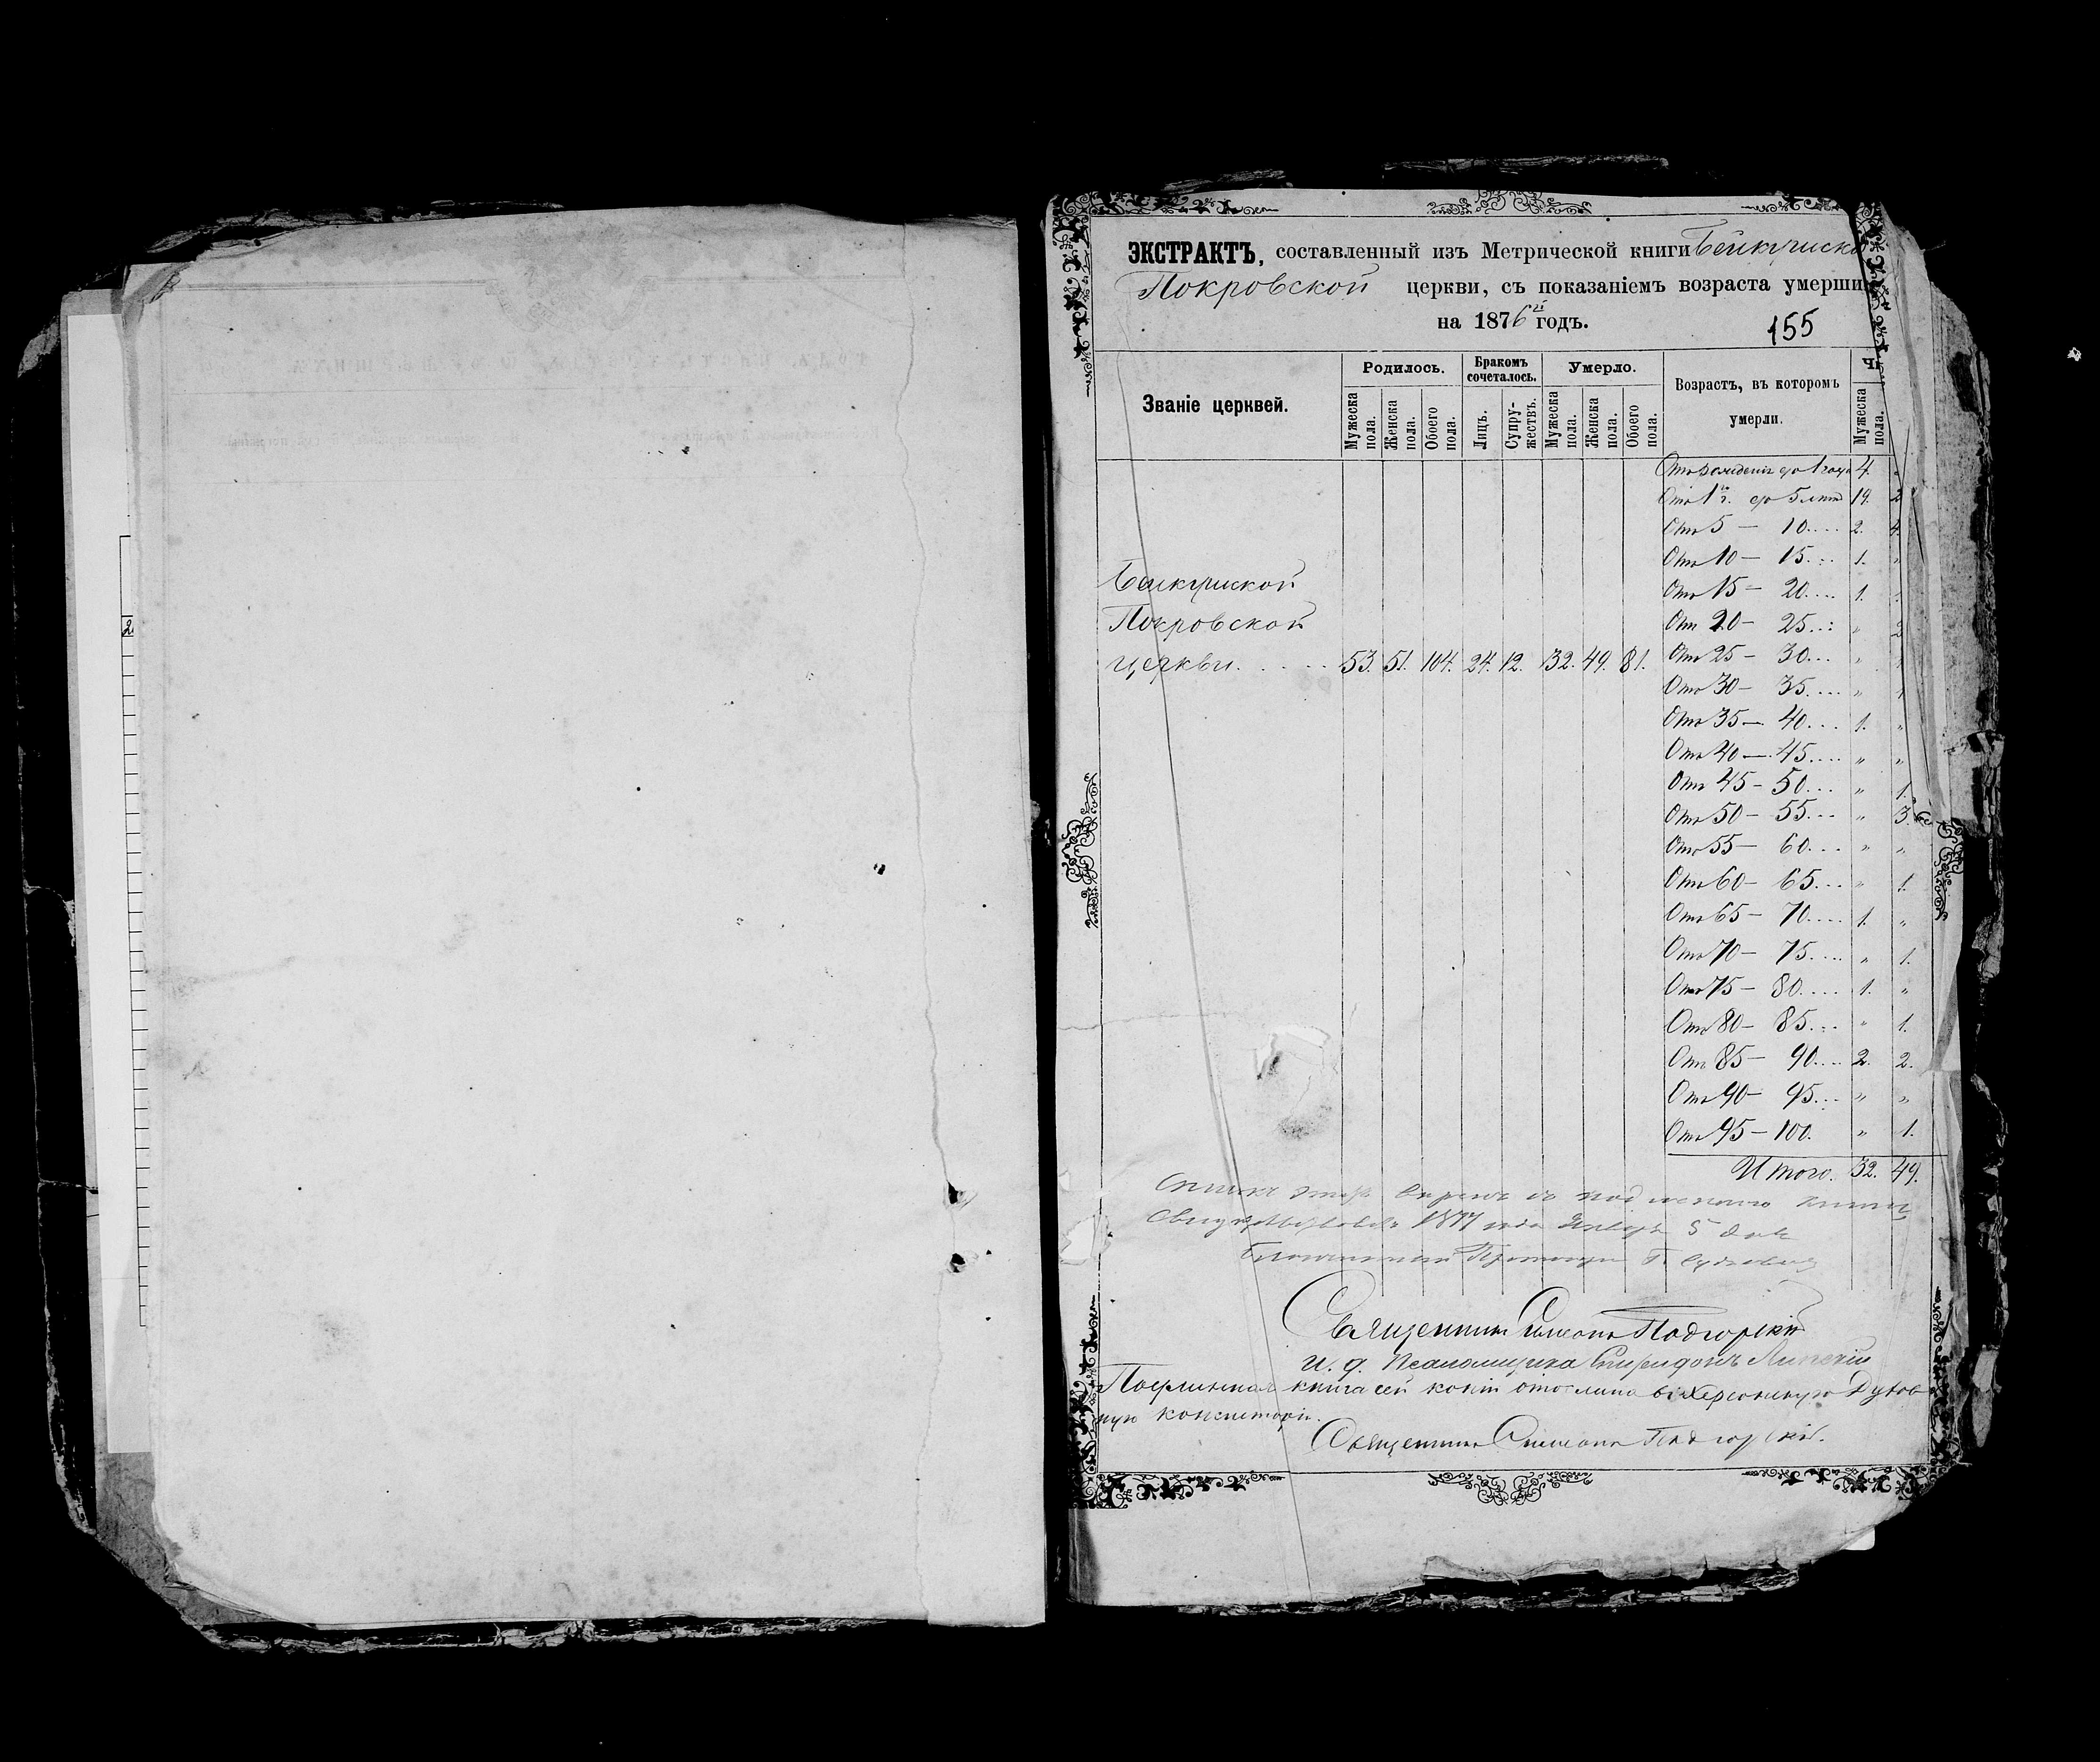 ЭКСТРАКТЪ, составленный изъ Метрической книги Бейкушско
Покровской церкви, съ показаніемъ возраста умерши
на 1876й годъ.
155
Званіе церквей.
Родилось.
Бракомъ сочеталось.
Умерло.
Возрастъ, въ которомъ умерли.
Ч
Мужеска пола.
Женска пола.
Обоего пола.
Лицъ.
Супружествъ.
Мужеска пола.
Женска пола.
Обоего пола.
Мужеска пола.
Отъ рожденія до 1 года 4. "
Отъ 1го г. до 5 лѣтъ 19. 2
Отъ 5 — 10.... 2. 4.
Отъ 10 — 15... 1. "
Отъ 15 — 20.... 1.
Отъ 20 — 25... " 2
Отъ 25 — 30... "
Отъ 30 — 35.... "
Отъ 35 — 40... 1. "
Отъ 40 — 45.... " "
Отъ 45 — 50... " 1.
Отъ 50 — 55... " 3.
Отъ 55 — 60... " "
Отъ 60 — 65... " 1.
Отъ 65 — 70.... 1. "
Отъ 70 — 75.... " 1.
Отъ 75 — 80.... 1. "
Отъ 80 — 85... " 1.
Отъ 85 — 90.... 2. 2.
Отъ 90 — 95... " "
Отъ 95 — 100. " 1.
Итого. 32. 49.
Бейкушской
Покровской
церкви. . . . . 53. 51. 104. 24. 12. 32. 49. 81.
1877 года Январь 5 дня
Благочинный Протоіерей Г.
Священникъ Симеонъ Подгорскій
и. д. Псаломщика Спиридонъ Липскій
Подлинная книга сей копіи отослана въ Херсонскую Духов
ную консисторію.
Священникъ Симеонъ Подгорскій.